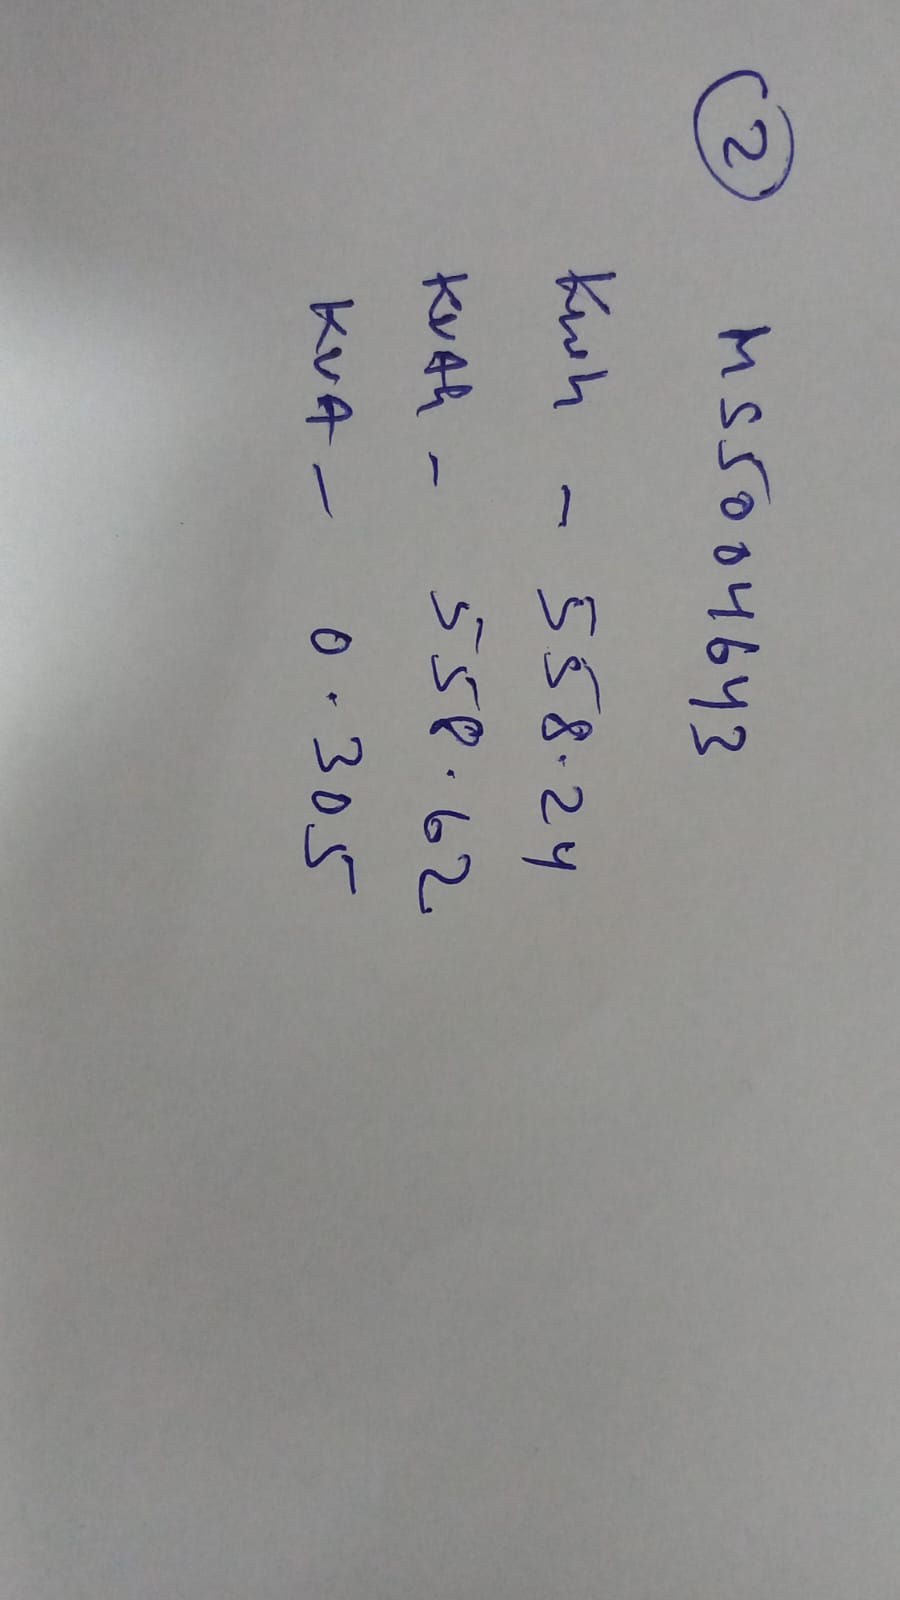 2 MS5004643
Kwh - 558.24
KVAh - 558.62
KVA - 0.305